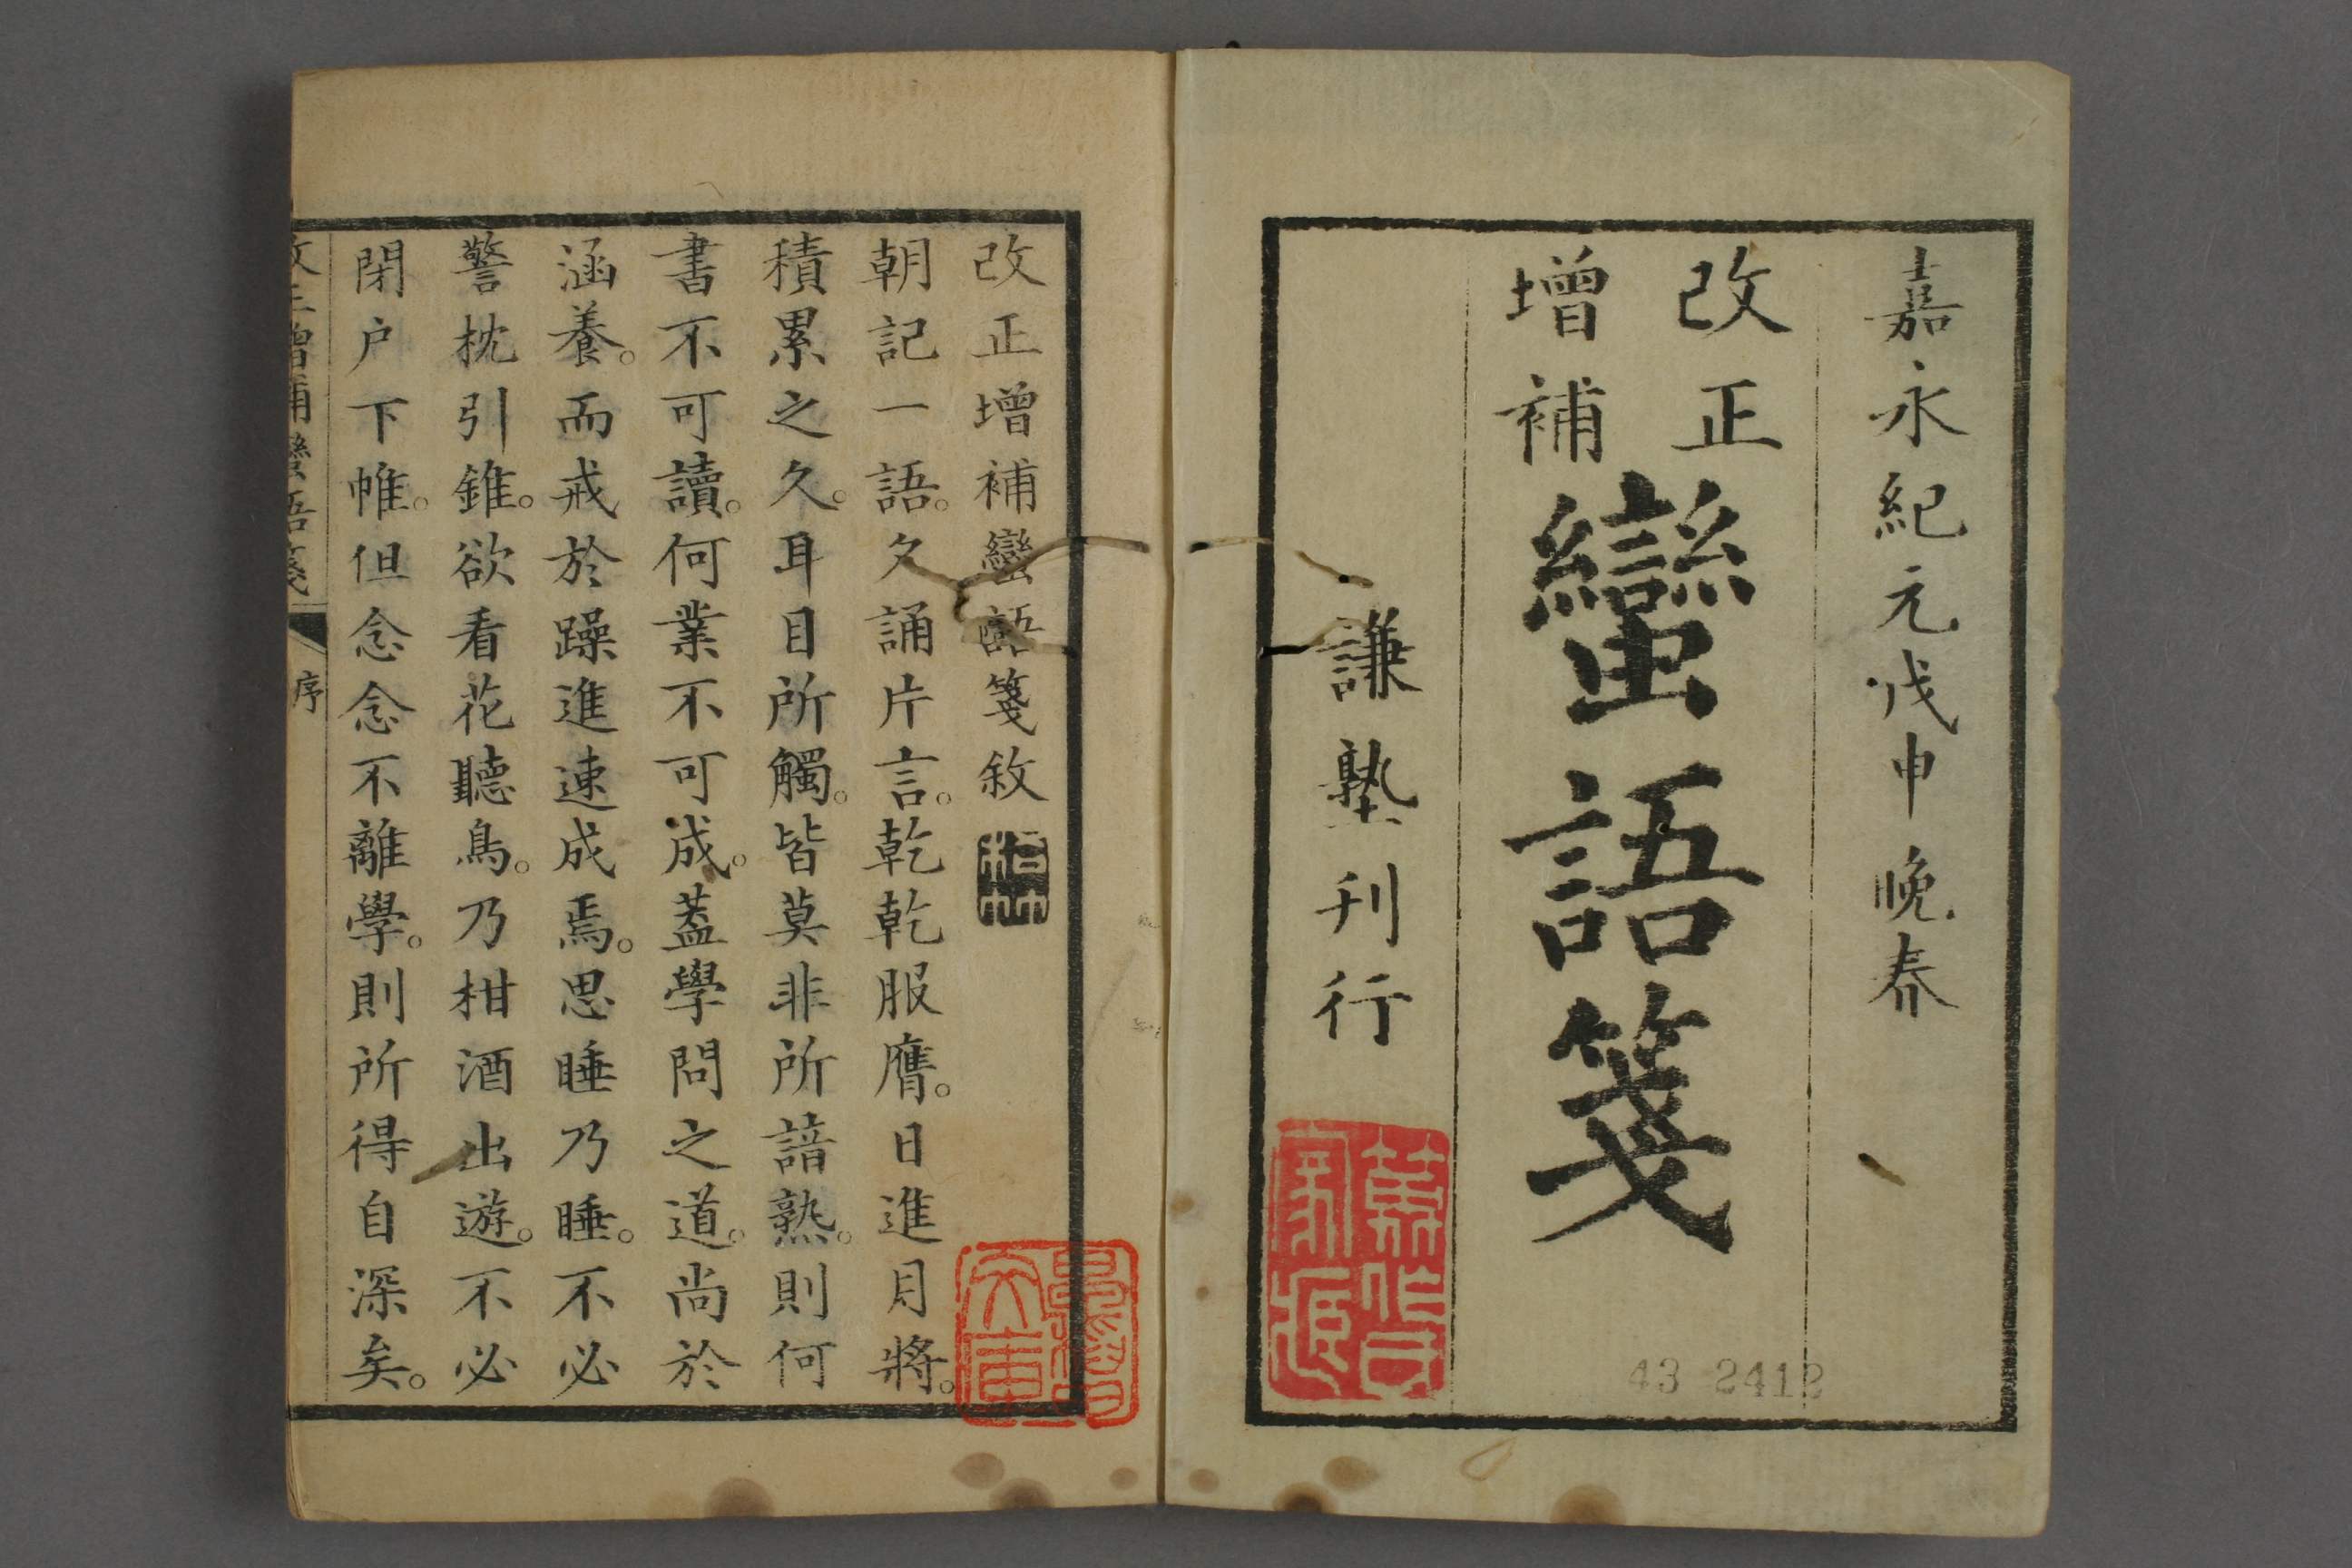 嘉永紀元戊申晩春
改正
增補
蠻語箋
謙塾刊行
43 2412
改正增補蠻語箋敘
朝記一語。夕誦片言。乾乾服膺。日進月將。
積累之久。耳目所觸。皆莫非所諳熟。則何
書不可讀。何業不可成。蓋學問之道。尚於
涵養。而戒於躁進速成焉。思睡乃睡。不必
警枕引錐。欲看花聽鳥。乃柑酒出遊。不必
閉户下帷。但念念不離學。則所得自深矣。
改正增補蠻語箋 序